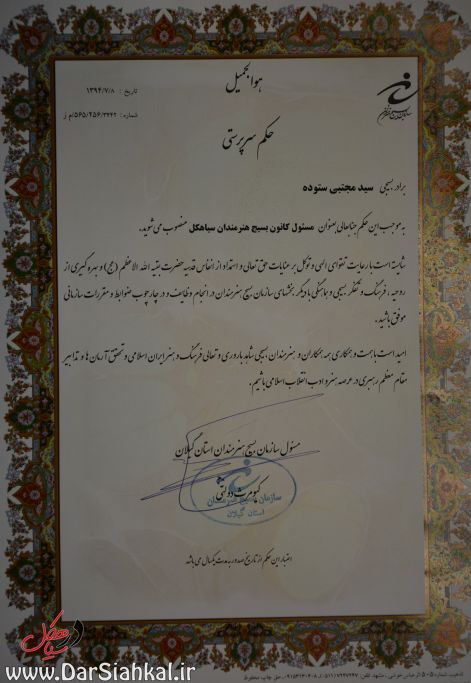 هوالجمیل
تاریخ : ۱۳۹۴/۷/۸
شماره : ۵۶۵/۴۵۶/۳۴۶۲/م ز
حکم سرپرستی
برادر بسیجی سید مجتبی ستوده
به موجب این حکم جنابعالی بعنوان مسئول کانون بسیج هنرمندان سیاهکل منصوب می شوید.
شایسته است با رعایت تقوای الهی و توکل بر عنایات حق تعالی و استمداد از انفاس قدسیه حضرت بقیه الله الاعظم (عج) و بهره گیری از
روحیه، فرهنگ و تفکر بسیجی و هماهنگی با دیگر بخشهای سازمان بسیج هنرمندان در انجام وظایف و در چارچوب ضوابط و مقررات سازمانی
موفق باشید.
امید است با همت و همکاری همه همکاران و هنرمندان بسیجی شاهد باروری و تعالی فرهنگ و هنر ایران اسلامی و تحقق آرمان ها و تدابیر
مقام معظم رهبری در عرصه هنر و ادب انقلاب اسلامی باشیم.
مسئول سازمان بسیج هنرمندان استان گیلان
کیومرث دولتی
سازمان بسیج هنرمندان
استان گیلان
اعتبار این حکم از تاریخ صدور به مدت یکسال می باشد
در سیاهکل
www.DarSiahkal.ir